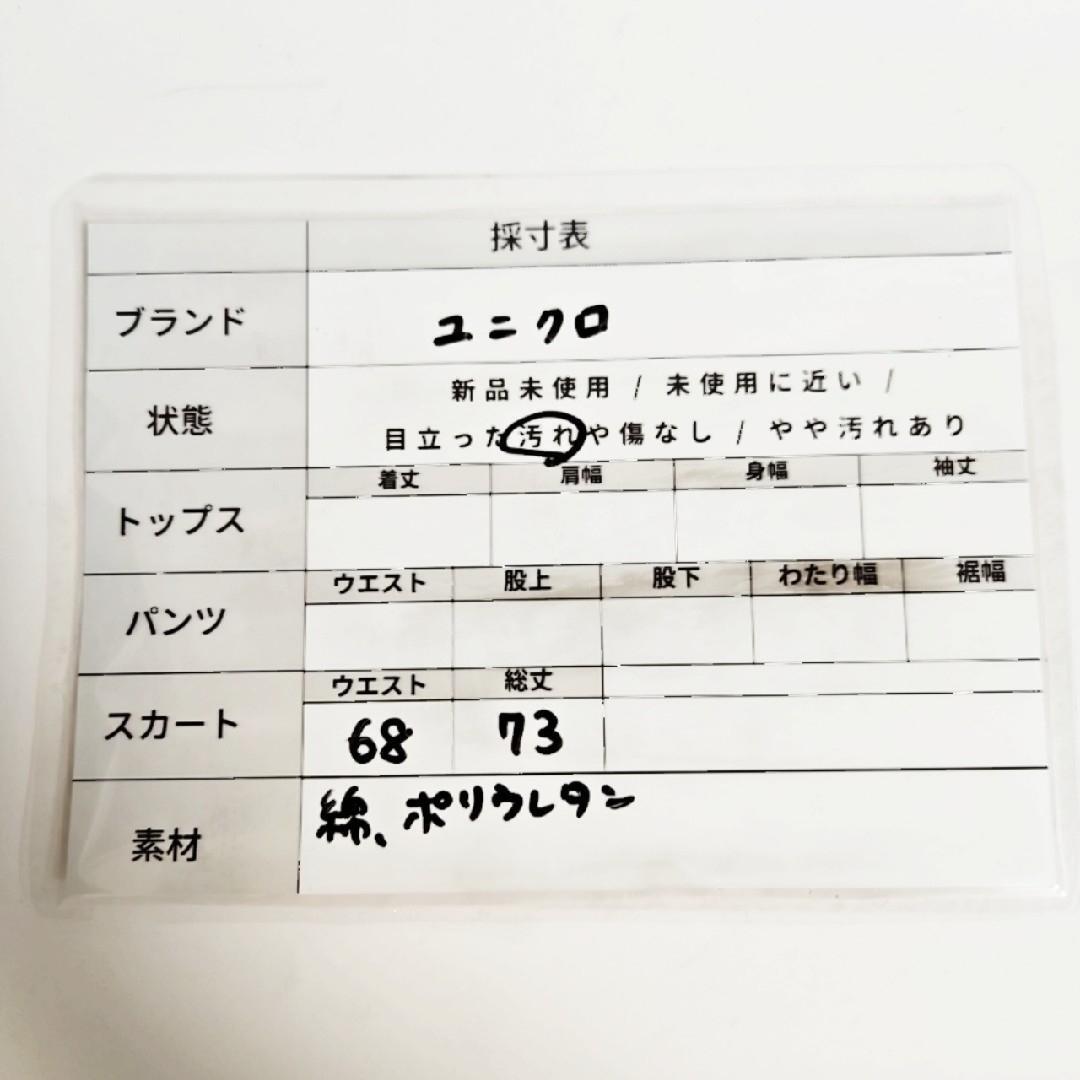 採寸表
ブランド ユニクロ
状態 新品未使用 / 未使用に近い /
目立った汚れや傷なし / やや汚れあり
着丈 肩幅 身幅 袖丈
トップス
ウエスト 股上 股下 わたり幅 裾幅
パンツ
ウエスト 総丈
スカート 68 73
素材 綿、ポリウレタン